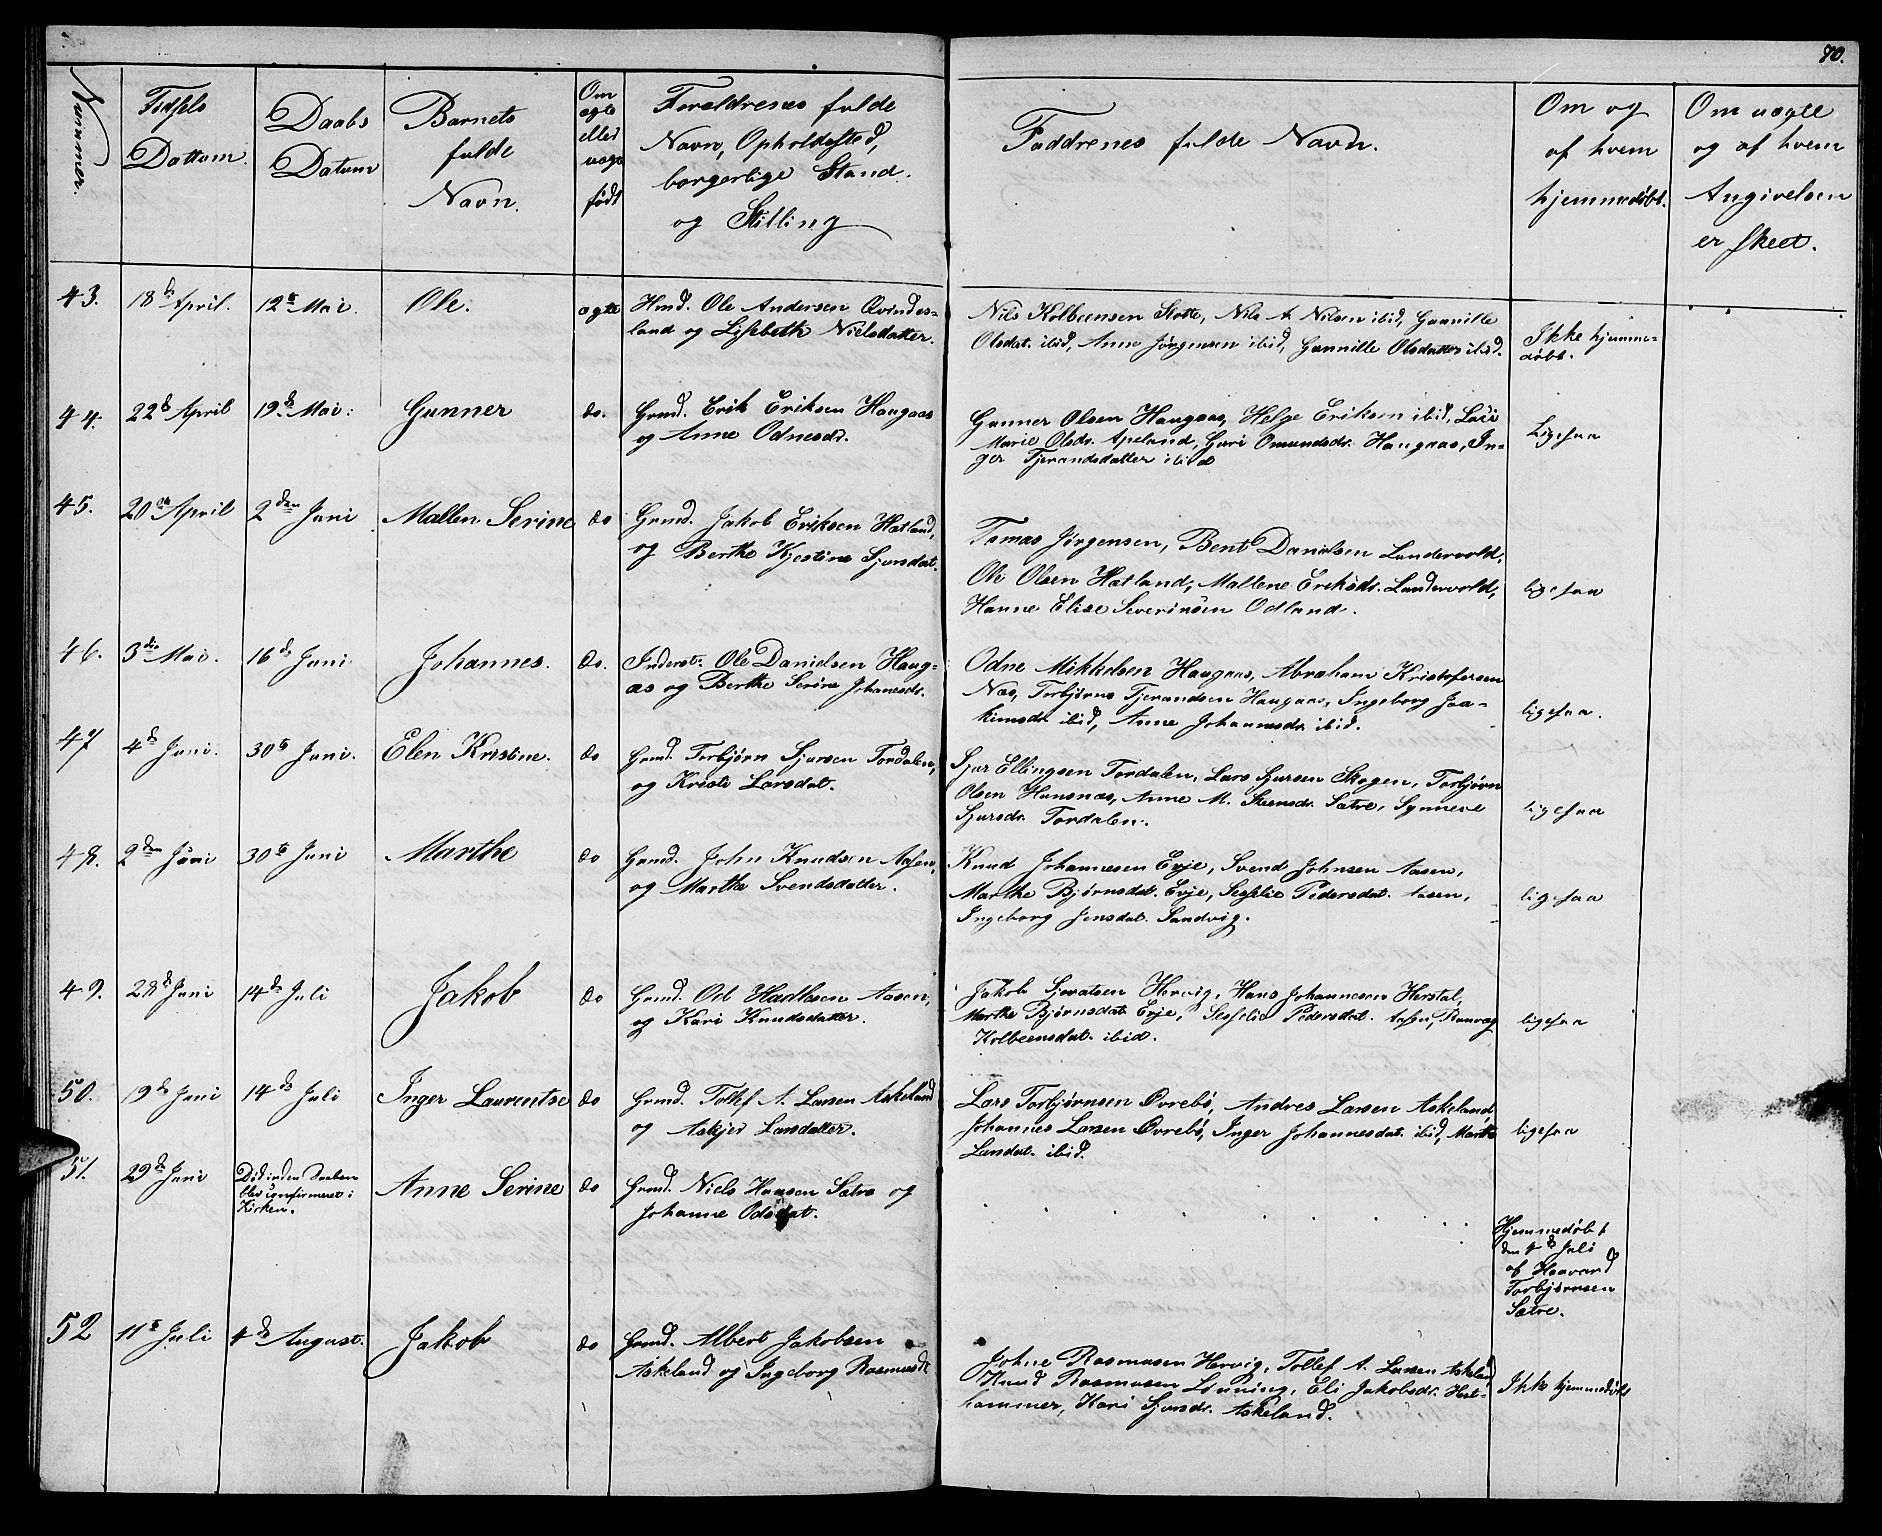 70.
Nummer.
Fødsels
Dattum.
Daabs
Datum
Barnets
fulde
Navn.
Om
ægte
eller
uægt
født
Forældrenes fulde
Navn, Opholdssted,
borgerlige Stand.
og Stilling
Faddrenes fulde Navn.
Om og
af hvem
hjemmedøbt.
Om uægte
og af hvem
Angivelsen
er skeet.
43. 18d April. 12te Mai. Ole. ægte
Hmd. Ole Andersen Qvindes-
land og Lisebeth Nielsdatter.
Nils Kolbeensen Slotte, Nils A Nilsen ibid, Gunnille
Olsdat. ibid, Anne Jørgensen ibid, Gunnille Olsdatter ibid.
Ikke hjemme-
døbt.
44. 22d April 19d Mai. Gunner do.
Grmd. Erik Eriksen Haugaas
og Anne Odnesdr.
Gunner Olsen Haugaas, Helge Eriksen ibid,
Marie Olsdr. Apeland, Guri Omundsdr. Haugaas, In-
ger Tjerandsdatter ibid
Ligesaa
45. 20 April 2den Juni Mallen Serine do
Grmd. Jakob Eriksen Hatland,
og Berthe Kjestine Sjursdat.
Tomas Jørgensen, Bent Danielsen Landervold,
Ole Olsen Hatland, Mallene Eriksdr. Landervold,
Hanne Elise Severinsen Odland.
ligesaa
46. 3die Mai. 16d Juni Johannes. do.
Inderst. Ole Danielsen Haug-
as og Berthe Serine Johansdr.
Odne Mikkelsen Haugaas, Abraham Kristofersen
Næs, Torbjørns Tjerandsen Haugaas, Ingeborg Joa-
kimsdr ibid, Anne Johannesdr ibid.
ligesaa.
47 4d Juni. 30te Juni. Elen Kristine. do
Grmd. Torbjørn Sjursen Tordalen,
og Kristi Larsdat.
Sjur Ellingsen Tordalen, Lars Sjursen Skogen, Torbjørn
Olsen Hunsnæs, Anne M. Steensdr. Sætre, Synneve
Sjursdr. Tordalen.
ligesaa
48. 2den Juni 30te Juni Marthe do
Grmd. John Knudsen Aasen,
og Martha Svendsdatter.
Knud Johannesen Evje, Svend Johnsen Aasen,
Marthe Bjørnsdat. Evje, Sesselie Pedersdat. Aasen,
Ingeborg Jensdat. Sandvig.
ligesaa
49. 28d Juni 14d Juli Jakob do
Grmd. Od Hadlesen Aasen,
og Kari Knudsdatter.
Jakob Sjovatsen Hervig, Hans Johannesen Herstal,
Marthe Bjørnsdat. Evje, Sesselie Pedersdat. Aasen, Ranveg
Kolbeensdat. ibid.
ligesaa
50. 19d Juni 14d Juli Inger Laurentse do
Grmd. Tollef A. Larsen Askeland
og Askjer Larsdatter.
Lars Torbjørnsen Øvrebø, Andres Larsen Askeland
Johannes Larsen Øvrebø, Inger Johannesdat. ibid, Marthe
Larsdat. ibid.
ligesaa
51. 29d Juni
Død inden Daaben
blev confirmeret i
Kirken.
Anne Serine do
Grmd. Niels Hansen Sætre og
Johanne Odsdat.
Hjemmedøbt
den 4d Juli
af Haavard
Torbjørnsen
Sætre.
52 11te Juli 4d August. Jakob do
Grmd. Albert Jakobsen
Askeland og Ingeborg Rasmusdt
Johne Rasmusen Hervig, Tollef A. Larsen Askeland
Knud Rasmusen Lønning, Eli Jakobsdr. Hest-
hammer, Kari Sjursdr. Askeland.
Ikke hjemmedøbt